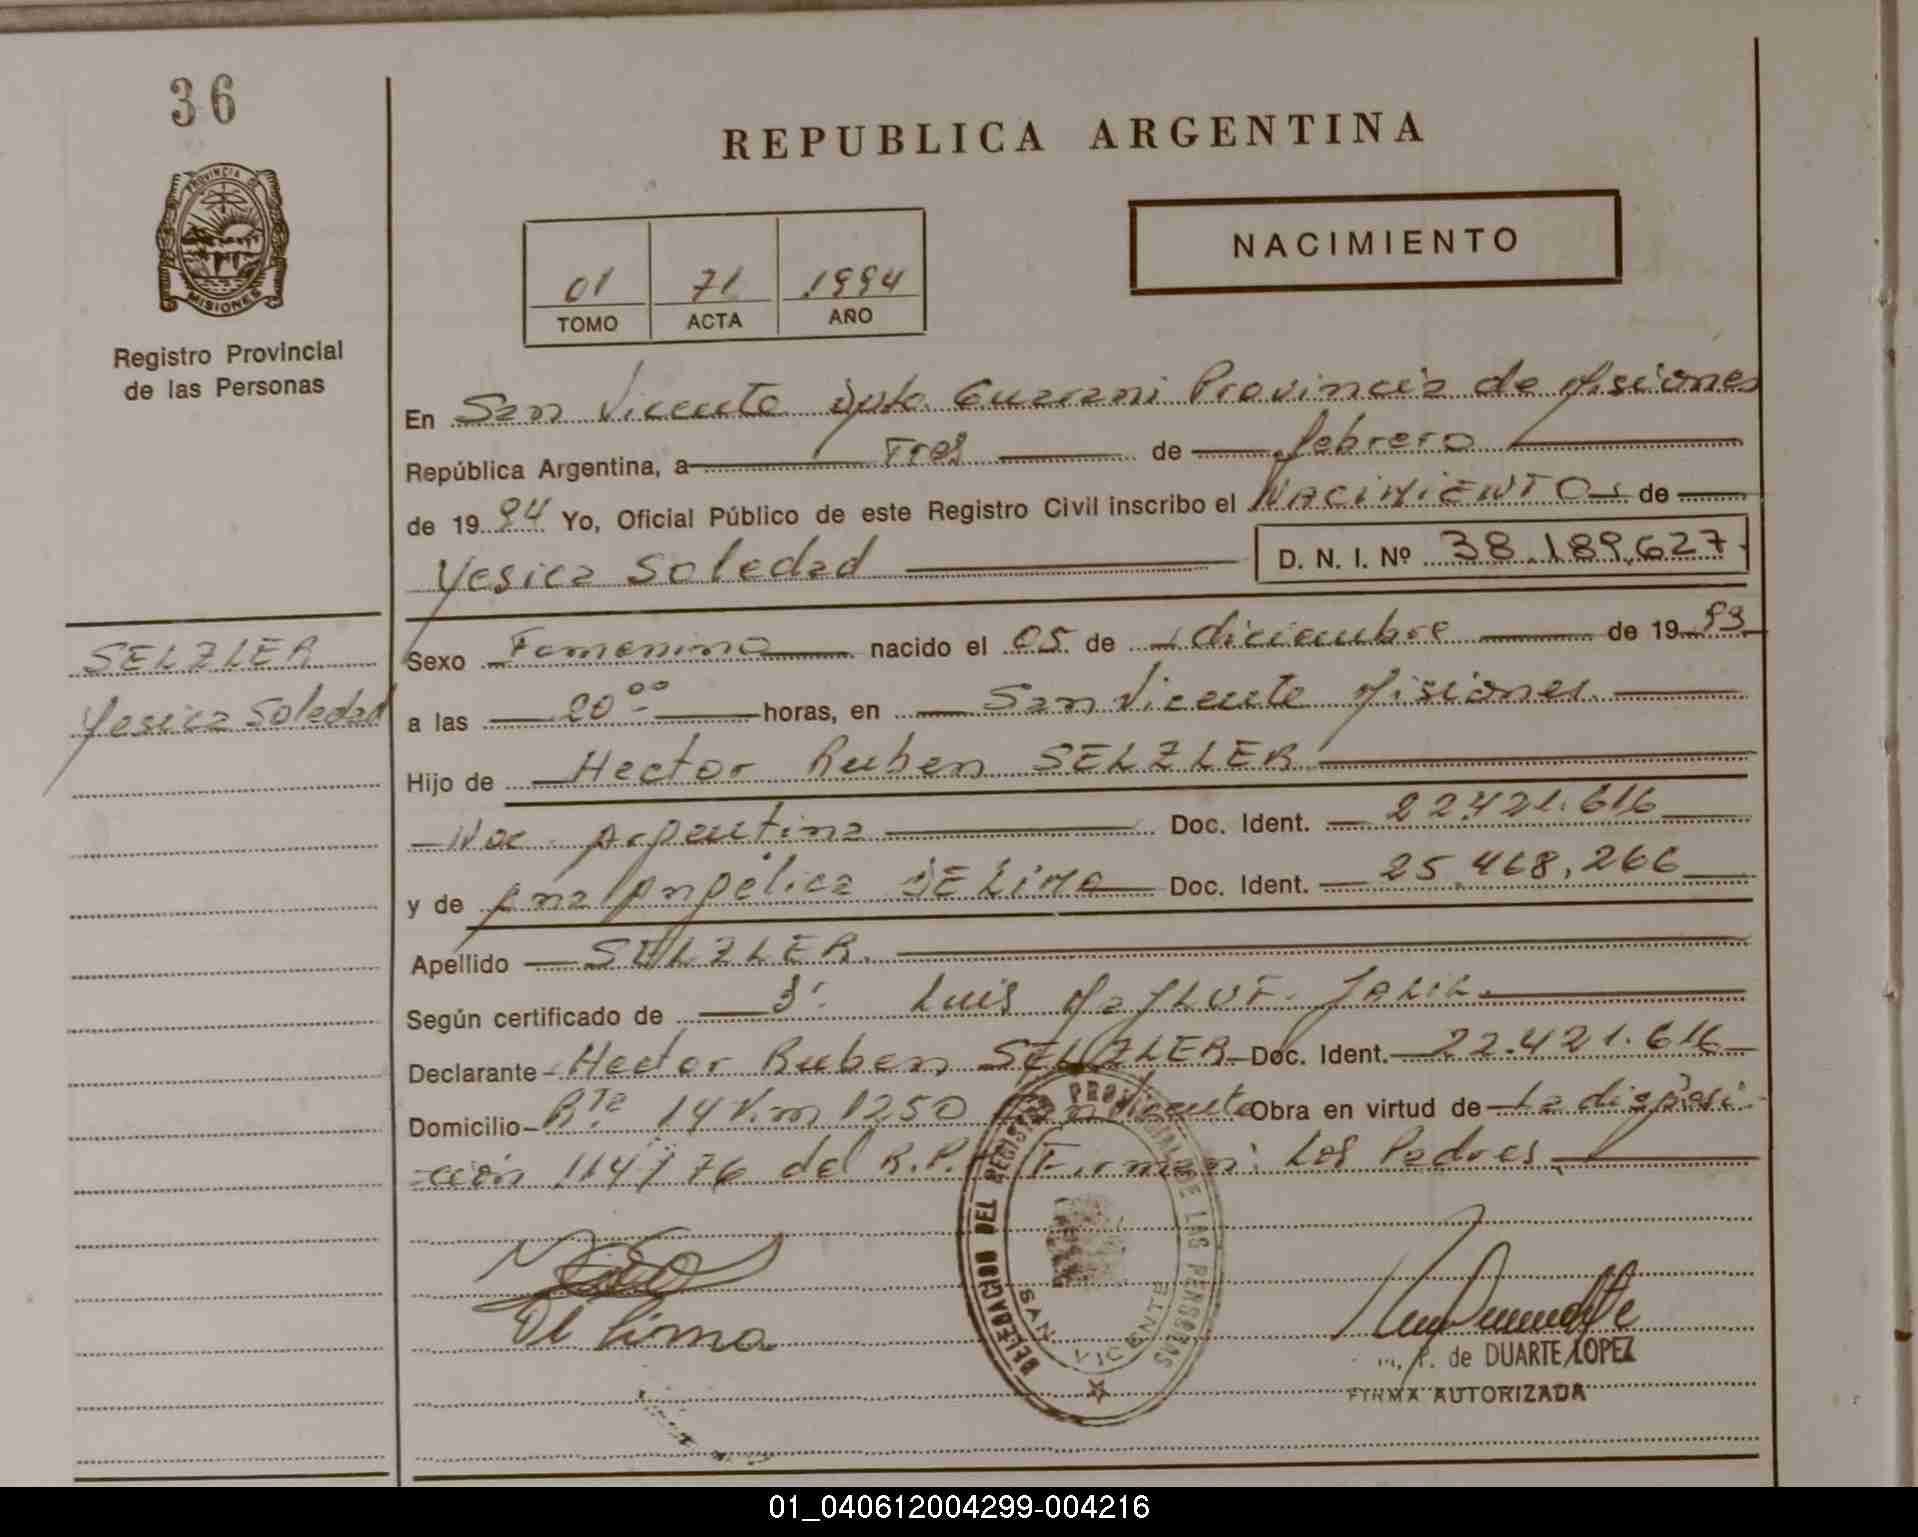 36
PROVINCIA DE
MISIONES
Registro Provincial
de las Personas
REPUBLICA ARGENTINA
NACIMIENTO
01 71 1994
TOMO ACTA AÑO
En San Vicente Dpto. Guarani Provincia de Misiones
República Argentina, a Tres de febrero
de 1994 Yo, Oficial Público de este Registro Civil inscribo el NACIMIENTO de
Yesica Soledad D. N. I. Nº 38.189.627
SELZLER
Yesica Soledad
Sexo Femenino nacido el 05 de diciembre de 1993
a las 20 00 horas, en San Vicente Misiones
Hijo de Hector Ruben SELZLER
Nac. Argentina Doc. Ident. 22.421.616
y de Ana Angélica DE LIMA Doc. Ident. 25.468.266
Apellido SELZLER
Según certificado de Luis
Declarante Hector Ruben SELZLER Doc. Ident. 22.421.616
Domicilio Rta 14 Km 1250 San Vicente Obra en virtud de la disposi
ción 114/76 del R.P. Firman: Los Padres
De lima
DELEGACION DEL REGISTRO PROVINCIAL DE LAS PERSONAS
SAN VICENTE
P. de DUARTE LOPEZ
FIRMA AUTORIZADA
01_040612004299-004216